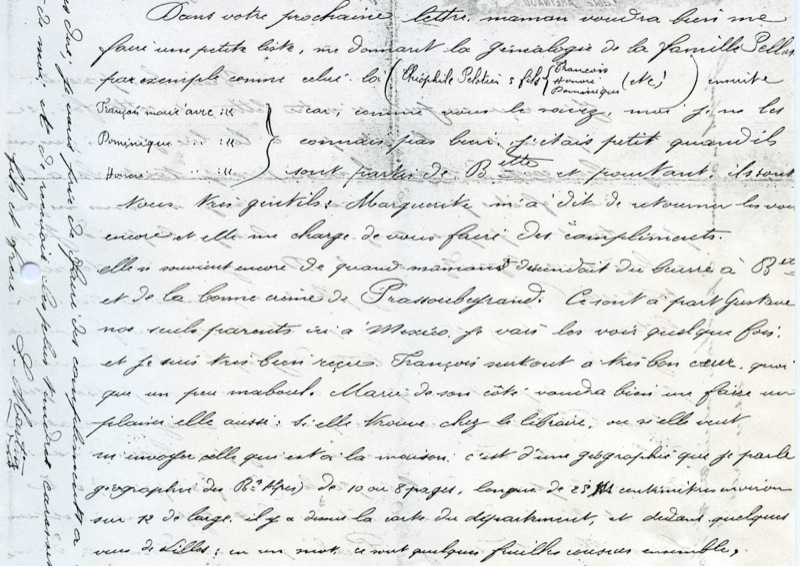 Dans votre prochaine lettre, maman voudra bien me
faire une petite liste, me donnant la généalogie de la famille Pellos
par exemple comme celui là (Théophile Pelotier : fils { François Honoré Dominique (etc) ) ensuite
François marié avec : "
Dominique " " : "
Honoré " " : "
car, comme vous le savez, moi je ne les
connais pas bien. j'étais petit quand ils
sont partis de B^ette et pourtant, ils sont
tous très gentils : Marguerite m'a dit de retourner les voir
encore et elle me charge de vous faire des compliments.
elle se souvient encore de quand maman descendait du beurre à B^tte
et de la bonne crème de Ce sont à part Gustave
nos seuls parents ici à Mexico je vais les voir quelque fois.
et je suis très bien reçu. François surtout a très bon cœur, quoi
que un peu maboul. Marie de son côté voudra bien me faire un
plaisir elle aussi : si elle trouve chez le libraire, ou si elle veut
m'envoyer celle qui est à la maison, c'est d'une géographie que je parle
géographie des B^ses Alpes) de 10 ou 8 pages, longue de 25 centimètres environ
sur 12 de large. il y a dans la carte du département, et dedans quelques
vues de villes ; en un mot, ce sont quelques feuilles cousues ensemble,
je vous prie de faire des compliments à
de moi, et de recevoir les plus tendres caresses
fils et frère.